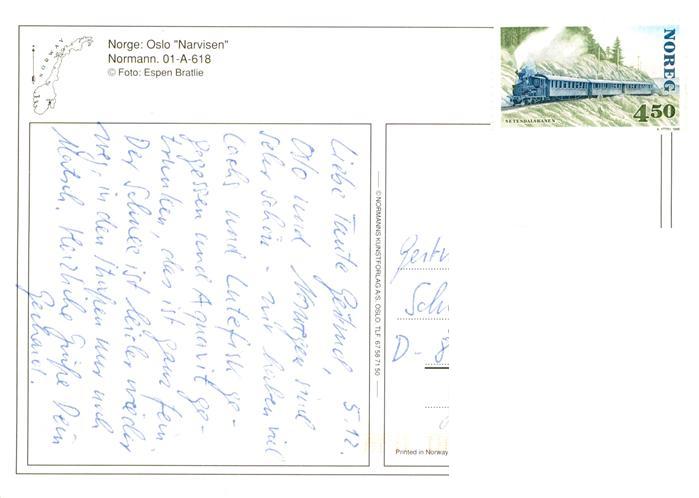 Norge: Oslo "Narvisen"
Normann. 01-A-618
© Foto: Espen Bratlie
NORWAY
NOREG
4 50
SETESDALSBANEN
5.12.
Liebe Tante Gertrud,
Oslo und Norwegen sind
sehr schön - wir haben viel
Lachs und Lutefisk ge-
gegessen und Aquavit ge-
trunken, das ist ganz fein
Der Schnee ist leider wieder
weg, in den Straßen nur noch
Matsch. Herzliche Grüße Dein
Gerhard.
© NORMANNS KUNSTFORLAG A.S. OSLO TLF 67 58 71 50
Gertr
Sch
D-8
Printed in Norway